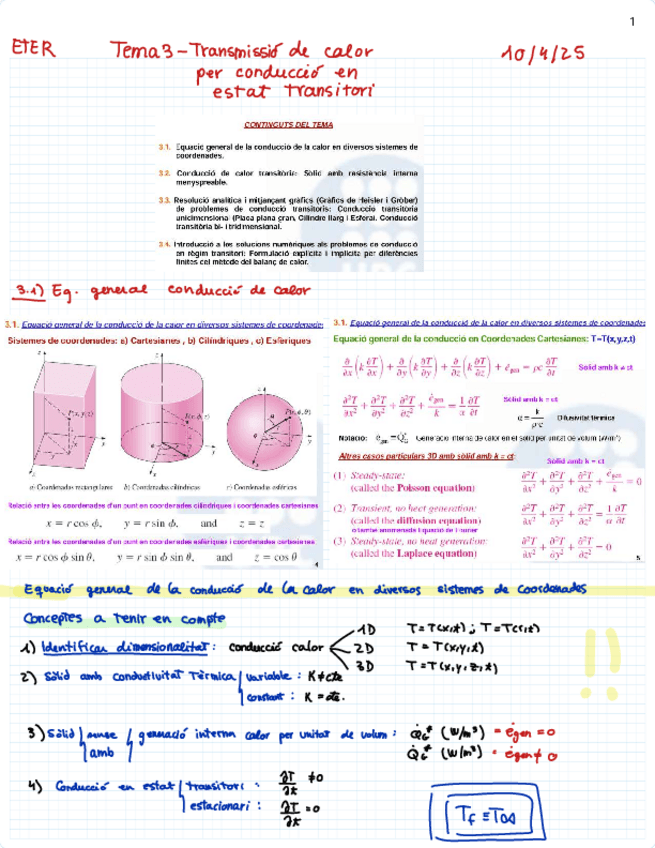 1
ETER
Tema 3 - Transmissió de calor
per conducció en
estat transitori
10/4/25
CONTINGUTS DEL TEMA
3.1. Equació general de la conducció de la calor en diversos sistemes de
coordenades.
3.2. Conducció de calor transitòria: Sòlid amb resistència interna
menyspreable.
3.3. Resolució analítica i mitjançant gràfics (Gràfics de Heisler i Gröber)
de problemes de conducció transitoris: Conducció transitòria
unidimensional (Placa plana gran, Cilindre llarg i Esfera). Conducció
transitòria bi- i tridimensional.
3.4. Introducció a les solucions numèriques als problemes de conducció
en règim transitori: Formulació explícita i implícita per diferències
finites del mètode del balanç de calor.
3.1) Eq. general conducció de calor
3.1. Equació general de la conducció de la calor en diversos sistemes de coordenades
Sistemes de coordenades: a) Cartesianes , b) Cilíndriques , c) Esfèriques
P(x, y, z)
a) Coordenadas rectangulares b) Coordenadas cilíndricas c) Coordenadas esféricas
Relació entre les coordenades d'un punt en coordenades cilíndriques i coordenades cartesianes
x = r cos ϕ, y = r sin ϕ, and z = z
Relació entre les coordenades d'un punt en coordenades esfèriques i coordenades cartesianes
x = r cos ϕ sin θ, y = r sin ϕ sin θ, and z = cos θ
4
3.1. Equació general de la conducció de la calor en diversos sistemes de coordenades
Equació general de la conducció en Coordenades Cartesianes: T=T(x,y,z,t)
∂/∂x (k ∂T/∂x) + ∂/∂y (k ∂T/∂y) + ∂/∂z (k ∂T/∂z) + ė_gen = ρc ∂T/∂t Sòlid amb k ≠ ct
∂²T/∂x² + ∂²T/∂y² + ∂²T/∂z² + ė_gen/k = 1/α ∂T/∂t Sòlid amb k = ct
α = k/ρ·c Difusivitat tèrmica
Notació: ė_gen = Generació interna de calor en el sòlid per unitat de volum (W/m³)
Altres casos particulars 3D amb sòlid amb k = ct:
Sòlid amb k = ct
(1) Steady-state:
(called the Poisson equation)
∂²T/∂x² + ∂²T/∂y² + ∂²T/∂z² + ė_gen/k = 0
(2) Transient, no heat generation:
(called the diffusion equation)
∂²T/∂x² + ∂²T/∂y² + ∂²T/∂z² = 1/α ∂T/∂t
(3) Steady-state, no heat generation:
(called the Laplace equation)
∂²T/∂x² + ∂²T/∂y² + ∂²T/∂z² = 0
5
Equació general de la conducció de la calor en diversos sistemes de coordenades
Conceptes a tenir en compte
1) Identificar dimensionalitat: conducció calor
1D T = T(x,t) ; T = T(r,t)
2D T = T(x,y,t)
3D T = T(x,y,z,t)
!!
2) Sòlid amb conductivitat Tèrmica variable : K ≠ cte
constant : K = cte.
3) Sòlid sense generació interna calor per unitat de volum : Q̇G* (W/m³) = ėgen = 0
amb Q̇G* (W/m³) = ėgen ≠ 0
4) Conducció en estat transitori : ∂T/∂t ≠ 0
estacionari : ∂T/∂t = 0
Tf ≡ T∞